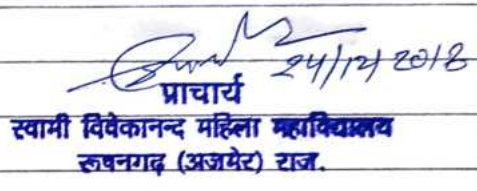 24/12/2018
प्राचार्य
स्वामी विवेकानन्द महिला महाविद्यालय
रूपनगढ़ (अजमेर) राज.